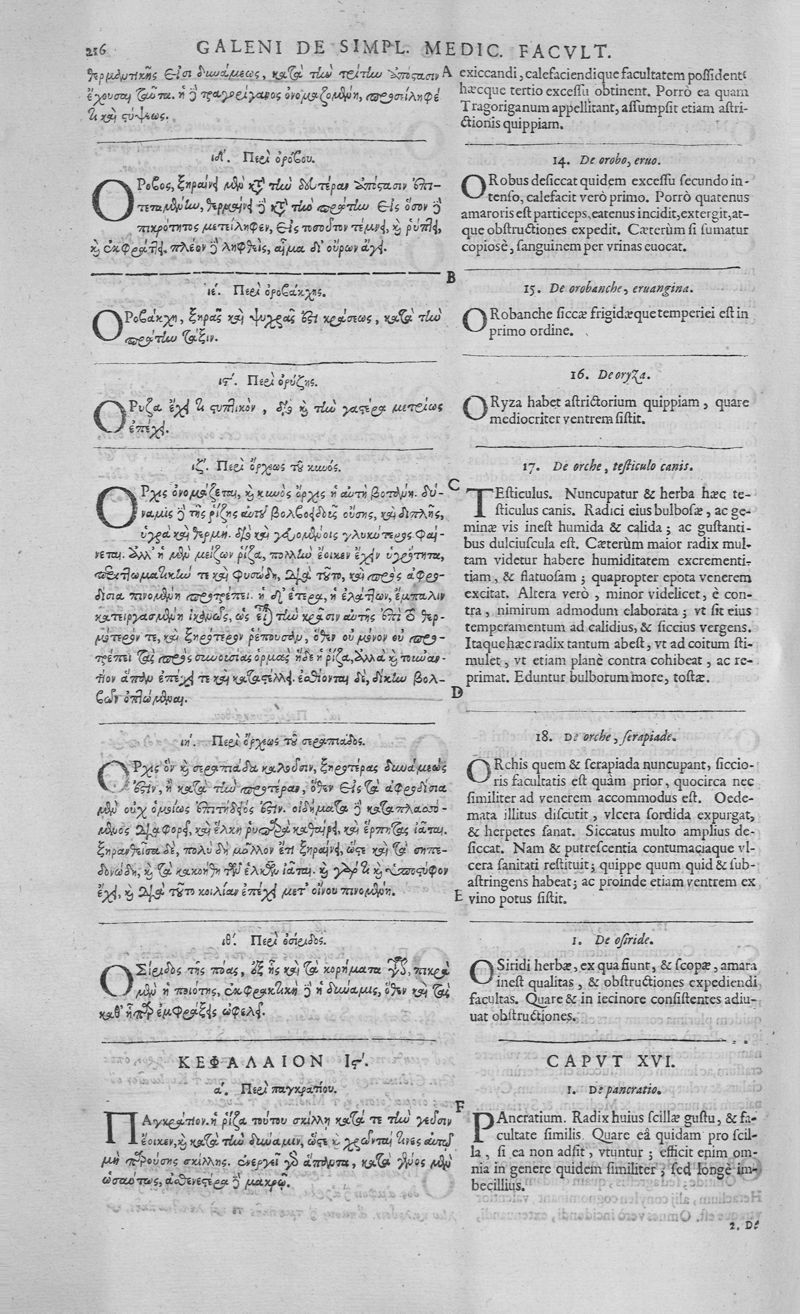 216 GALENI DE SIMPL. MEDIC. FACVLT.
θερμαντικῆς εἰσι δυνάμεως, κατὰ τὴν τρίτην ἀπόστασιν
ἔχουσαι ταῦτα. ἡ δὲ τραγορίγανος ὀνομαζομένη, προσείληφέ
τι καὶ στύψεως.
ιδʹ. Περὶ ὀρόβου.
ΟΡοβος, ξηραίνει μὲν κατὰ τὴν δευτέραν ἀπόστασιν ἐπι-
τεταμένην, θερμαίνει δὲ κατὰ τὴν πρώτην εἰς ὅσον δὲ
πικρότητος μετείληφεν, εἰς τοσοῦτον τέμνει, καὶ ῥύπτει,
καὶ ἐκφράττει. πλέον δὲ ληφθεὶς, αἷμα δι' οὔρων ἄγει.
ιεʹ. Περὶ ὀροβάκχης.
ΟΡοβάκχη, ξηρᾶς καὶ ψυχρᾶς ἐστι κράσεως, κατὰ τὴν
πρώτην τάξιν.
ιϛʹ. Περὶ ὀρύζης.
ΟΡυζα ἔχει τι στυπτικὸν, διὸ καὶ τὴν γαστέρα μετρίως
ἐπέχει.
ιζʹ. Περὶ ὄρχεως τοῦ κυνός.
ΟΡχις ὀνομάζεται, καὶ κυνὸς ὄρχις ἡ αὐτὴ βοτάνη. δύ-
ναμις δὲ τῆς ῥίζης αὐτοῦ βολβοειδοῦς οὔσης, καὶ διπλῆς,
ὑγρὰ καὶ θερμή. διὸ καὶ γευομένοις γλυκυτέρος φαί-
νεται. ἀλλ' ἡ μὲν μείζων ῥίζα, πολλὴν ἔοικεν ἔχειν ὑγρότητα,
περιττωματικὴν τε καὶ φυσώδη, διὰ τοῦτο, καὶ πρὸς ἀφρο-
δίσια πινομένη προτρέπει. ἡ δ' ἑτέρα, ἡ ἐλάττων, ἔμπαλιν
κατειργασμένη ἱκανῶς, ὡς εἶναι τὴν κρᾶσιν αὐτῆς ἐπὶ τὸ θερ-
μότερόν τε, καὶ ξηρότερον ῥέπουσαν, ὅθεν οὐ μόνον οὐ προ-
τρέπει τὰς πρὸς συνουσίας ὁρμὰς ἥδε ἡ ῥίζα, ἀλλὰ καὶ τοὐναν-
τίον ἅπαν ἐπέχει τε καὶ καταστέλλει. ἐσθίονται δὲ, δίκην βολ-
βῶν ὀπτώμεναι.
ιηʹ. Περὶ ὄρχεως τοῦ σεραπιάδος.
ΟΡχις ὃν καὶ σεραπιάδα καλοῦσιν, ξηροτέρας δυνάμεώς
ἐστιν, ἢ κατὰ τὴν προτέραν, ὅθεν εἰς τὰ ἀφροδίσια
μὲν οὐχ ὁμοίως ἐπιτήδειός ἐστιν. οἰδήματα δὲ καταπλασσό-
μενος διαφορεῖ, καὶ ἕλκη ῥυπαρὰ καθαίρει, καὶ ἕρπητας ἰᾶται.
ξηρανθεῖσα δὲ, πολὺ δὴ μᾶλλον ἔτι ξηραίνει, ὥστε καὶ τὰ σηπε-
δονώδη, καὶ τὰ κακοήθη τῶν ἑλκῶν ἰᾶται. καὶ γάρ τι καὶ ὑποστῦφον
ἔχει, καὶ διὰ τοῦτο κοιλίαν ἐπέχει μετ' οἴνου πινομένη.
ιθʹ. Περὶ ὀσίριδος.
ΟΣίριδος τῆς πόας, ἐξ ἧς καὶ τὰ κορήματα γίνεται, πικρὰ
μὲν ἡ ποιότης, ἐκφρακτικὴ δὲ ἡ δύναμις, ὅθεν καὶ τὰς
καθ' ἧπαρ ἐμφράξεις ὠφελεῖ.
ΚΕΦΑΛΑΙΟΝ Ιϛʹ.
αʹ. Περὶ παγκρατίου.
ΠΑγκράτιον. ἡ ῥίζα τούτου σκίλλῃ κατά τε τὴν γεῦσιν
ἔοικεν, καὶ κατὰ τὴν δύναμιν, ὥστε καὶ χρῶνταί τινες αὐτῇ
μὴ παρούσης σκίλλης. ἐνεργεῖ γὰρ ἅπαντα, κατὰ γένος μὲν
ὡσαύτως, ἀσθενέστερα δὲ μακρῷ.
A exiccandi, calefaciendique facultatem possident:
hæcque tertio excessu obtinent. Porrò ea quam
Tragoriganum appellitant, assumpsit etiam astri-
ctionis quippiam.
14. De orobo, eruo.
ORobus desiccat quidem excessu secundo in-
tenso, calefacit verò primo. Porrò quatenus
amaroris est particeps, eatenus incidit, extergit, at-
que obstructiones expedit. Cæterùm si sumatur
copiosè, sanguinem per vrinas euocat.
B
15. De orobanche, eruangina.
ORobanche siccæ frigidæque temperiei est in
primo ordine.
16. De oryza.
ORyza habet astrictorium quippiam, quare
mediocriter ventrem sistit.
17. De orche, testiculo canis.
C
TEsticulus. Nuncupatur & herba hæc te-
sticulus canis. Radici eius bulbosæ, ac ge-
minæ vis inest humida & calida; ac gustanti-
bus dulciuscula est. Cæterùm maior radix mul-
tam videtur habere humiditatem excrementi-
tiam, & flatuosam; quapropter epota venerem
excitat. Altera verò, minor videlicet, è con-
tra, nimirum admodum elaborata; vt sit eius
temperamentum ad calidius, & siccius vergens.
Itaque hæc radix tantum abest, vt ad coitum sti-
mulet, vt etiam planè contra cohibeat, ac re-
primat. Eduntur bulborum more, tostæ.
D
18. De orche, serapiade.
ORchis quem & serapiada nuncupant, siccio-
ris facultatis est quàm prior, quocirca nec
similiter ad venerem accommodus est. Oede-
mata illitus discutit, vlcera sordida expurgat,
& herpetes sanat. Siccatus multo amplius de-
siccat. Nam & putrescentia contumaciaque vl-
cera sanitati restituit; quippe quum quid & sub-
astringens habeat; ac proinde etiam ventrem ex
E vino potus sistit.
1. De osiride.
OSiridi herbæ, ex qua fiunt, & scopæ, amara
inest qualitas, & obstructiones expediendi
facultas. Quare & in iecinore consistentes adiu-
uat obstructiones.
CAPVT XVI.
1. De pancratio.
F
PAncratium. Radix huius scillæ gustu, & fa-
cultate similis. Quare eâ quidam pro scil-
la, si ea non adsit, vtuntur; efficit enim om-
nia in genere quidem similiter; sed longè im-
becillius.
2. De